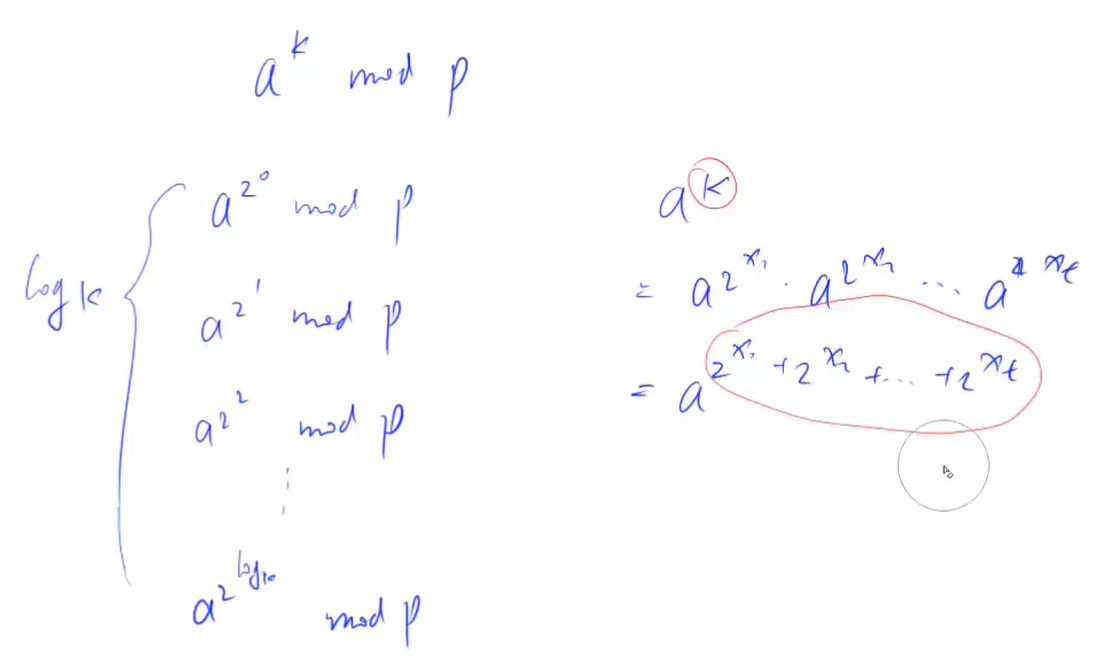 a^k mod p
a^{2^0} mod p
a^{2^1} mod p
log k
a^{2^2} mod p
⋮
a^{2^{log k}} mod p
a^k
= a^{2^{x_1}} · a^{2^{x_2}} ... a^{2^{x_t}}
= a^{2^{x_1} + 2^{x_2} + ... + 2^{x_t}}